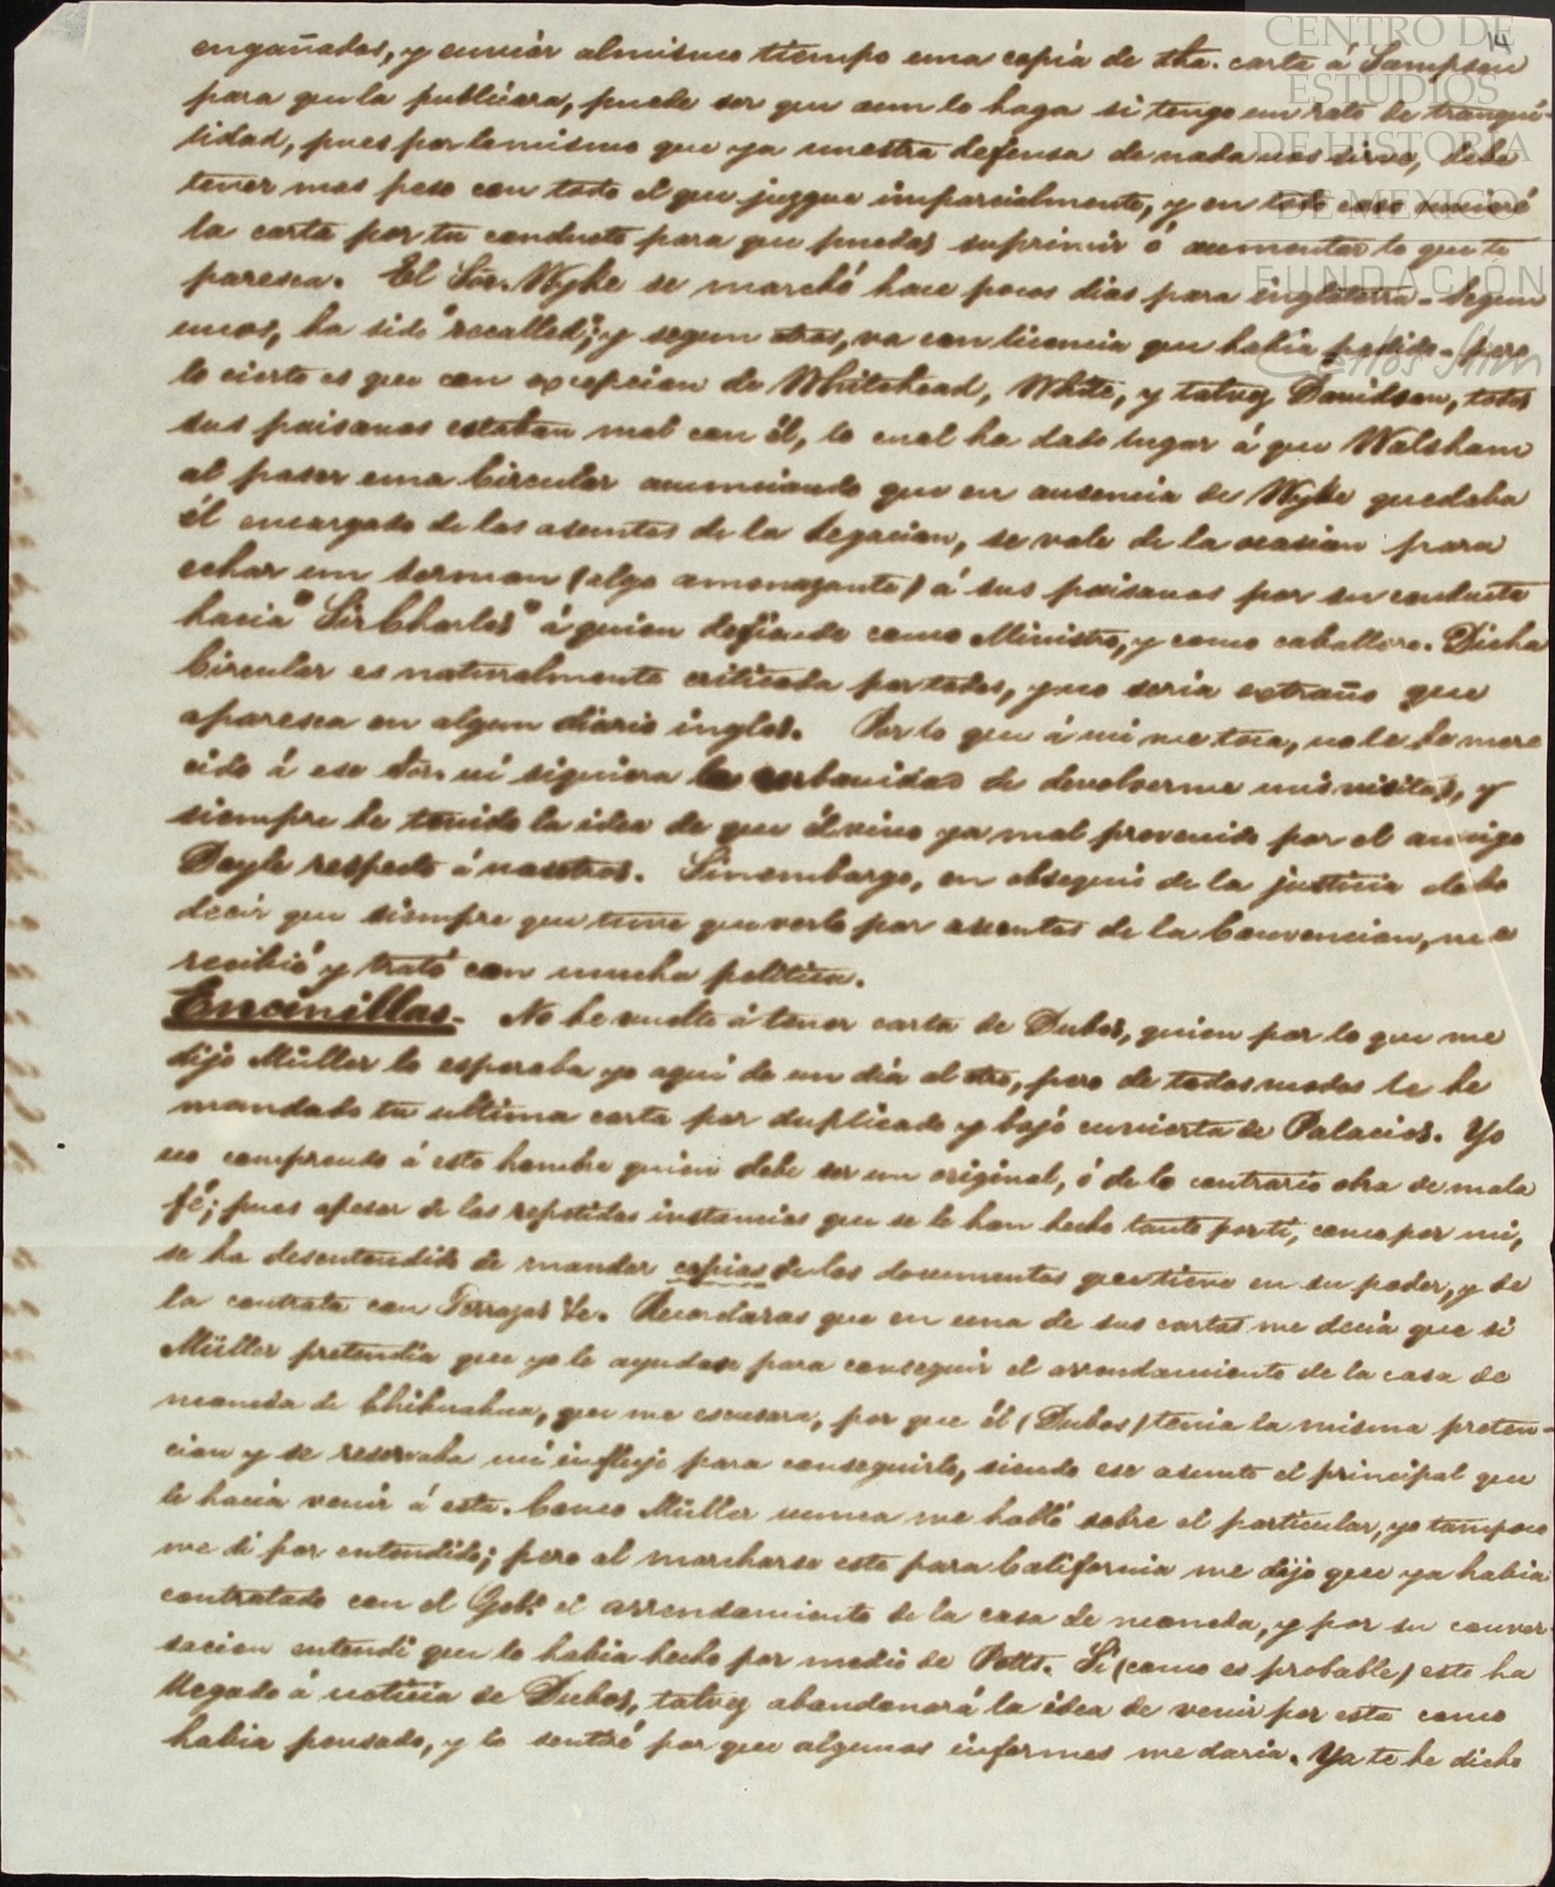 14
CENTRO DE
ESTUDIOS
DE HISTORIA
DE MEXICO
FUNDACIÓN
Carlos Slim
engañados, y enviar al mismo tiempo una copia de dha. carta á Sampson
para que la publicara, puede ser que aun lo haga si tengo un rato de tranqui-
lidad, pues por lo mismo que ya nuestra defensa de nada nos sirve, debe
tener mas peso con todo el que juzgue imparcialmente, y en tal caso enviaré
la carta por tu conducto para que puedas suprimir ó aumentar lo que te
paresca. El Sor. Wyke se marchó hace pocos dias para inglaterra - Segun
unos, ha sido "recalled"; y segun otros, va con licencia que habia pedido - pero
lo cierto es que con excepcion de Whitehead, White, y talvez Davidson, todos
sus paisanos estaban mal con él, lo cual ha dado lugar á que Walsham
al pasar una Circular anunciando que en ausencia de Wyke quedaba
él encargado de los asuntos de la Legacion, se vale de la ocasion para
echar un sermon (algo amenazante) á sus paisanos por su conducta
hacia "Sir Charles" á quien defiende como Ministro, y como caballero. Dicha
Circular es naturalmente criticada por todos, y no seria extraño que
aparesca en algun diario ingles. Por lo que á mi me toca, no le he mere
cido á ese Sor. ni siquiera la urbanidad de devolverme mis visitas, y
siempre he tenido la idea de que él vino ya mal prevenido por el amigo
Doyle respecto á nosotros. Sinembargo, en obsequio de la justicia debo
decir que siempre que tuve que verlo por asuntos de la Convencion, me
recibió y trató con mucha politica.
Encinillas - No he vuelto á tener carta de Dubos, quien por lo que me
dijo Müller lo esperaba yo aqui de un dia al otro, pero de todos modos le he
mandado tu ultima carta por duplicado y bajó cuvierta de Palacios. Yo
no comprendo á este hombre quien debe ser un original, ó de lo contrario obra de mala
fé; pues apesar de las repetidas instancias que se le han hecho tanto por ti, como por mi,
se ha desentendido de mandar copias de los documentos que tiene en su poder, y de
la contrata con Terrazas &c. Recordaras que en una de sus cartas me decia que si
Müller pretendia que yo le ayudase para conseguir el arrendamiento de la casa de
moneda de Chihuahua, que me escusara, por que él (Dubos) tenia la misma preten-
cion y se reservaba mi influjo para conseguirlo, siendo ese asunto el principal que
le hacia venir á esta. Como Müller nunca me habló sobre el particular, yo tampoco
me di por entendido; pero al marcharse este para California me dijo que ya habia
contratado con el Gobo. el arrendamiento de la casa de moneda, y por su conver-
sacion entendi que lo habia hecho por medio de Potts. Si (como es probable) esto ha
llegado á noticia de Dubos, talvez abandonará la idea de venir por esta como
habia pensado, y lo sentiré por que algunos informes me daria. Ya te he dicho